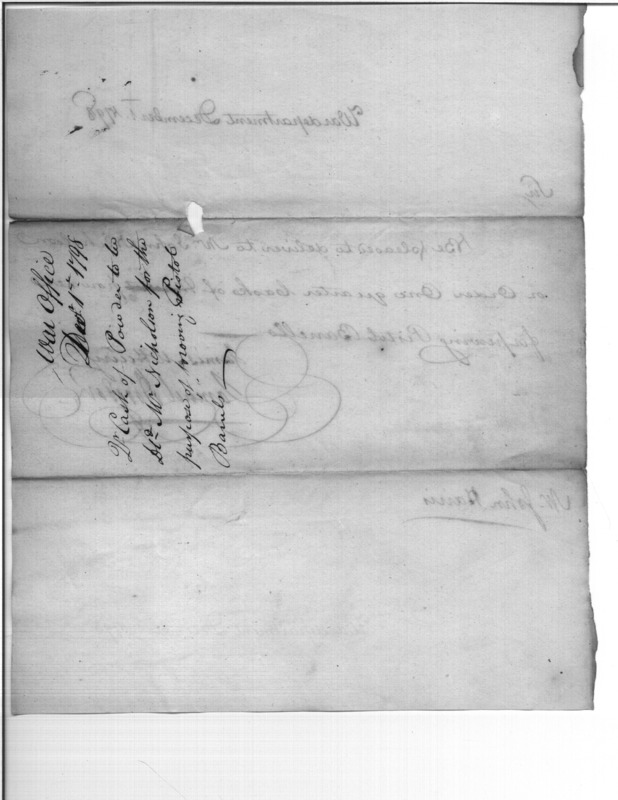 War Office
Decr. 1st. 1798
Qr Cask of Powder to be
Dld. Mr Nicholson for the
purpose of prooving Pistol
Barrels
War department December 1st. 1798
Sir,
Be pleased to deliver to Mr. John
or Order One quarter Cask of
for prooving Pistol Barrells
Mr. John Harris